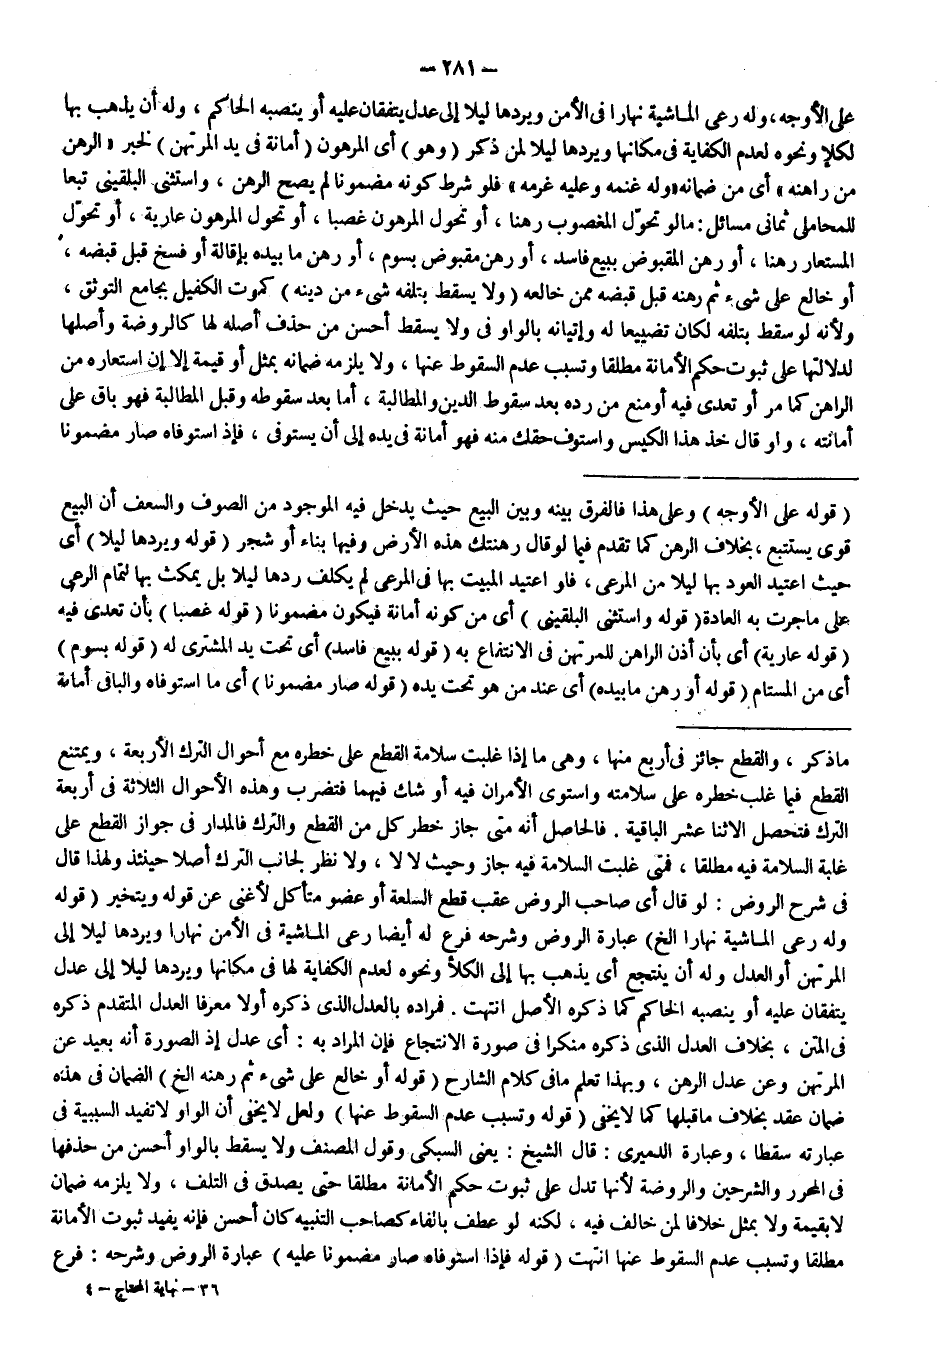 – ٢٨١ –
على الأوجه ، وله رعى الماشية نهارا فى الأمن ويردها ليلا إلى عدل يتفقان عليه أو ينصبه الحاكم ، وله أن يذهب بها
لكلإ ونحوه لعدم الكفاية فى مكانها ويردها ليلا لمن ذكر ( وهو ) أى المرهون ( أمانة فى يد المرتهن ) لخبر « الرهن
من راهنه » أى من ضمانه « وله غنمه وعليه غرمه » فلو شرط كونه مضمونا لم يصح الرهن ، واستثنى البلقينى تبعا
للمحاملى ثمانى مسائل : مالو تحوّل المغصوب رهنا ، أو تحول المرهون غصبا ، أو تحول المرهون عارية ، أو تحوّل
المستعار رهنا ، أو رهن المقبوض ببيع فاسد ، أو رهن مقبوض بسوم ، أو رهن ما بيده بإقالة أو فسخ قبل قبضه ،
أو خالع على شىء ثم رهنه قبل قبضه ممن خالعه ( ولا يسقط بتلفه شىء من دينه ) كموت الكفيل بجامع التوثق ،
ولأنه لو سقط بتلفه لكان تضييعا له وإتيانه بالواو فى ولا يسقط أحسن من حذف أصله لها كالروضة وأصلها
لدلالتها على ثبوت حكم الأمانة مطلقا وتسبب عدم السقوط عنها ، ولا يلزمه ضمانه بمثل أو قيمة إلا إن استعاره من
الراهن كما مر أو تعدى فيه أو منع من رده بعد سقوط الدين والمطالبة ، أما بعد سقوطه وقبل المطالبة فهو باق على
أمانته ، واو قال خذ هذا الكيس واستوف حقك منه فهو أمانة فى يده إلى أن يستوفى ، فإذ استوفاه صار مضمونا
( قوله على الأوجه ) وعلى هذا فالفرق بينه وبين البيع حيث يدخل فيه الموجود من الصوف والسعف أن البيع
قوى يستتبع ، بخلاف الرهن كما تقدم فيما لو قال رهنتك هذه الأرض وفيها بناء أو شجر ( قوله ويردها ليلا ) أى
حيث اعتيد العود بها ليلا من المرعى ، فاو اعتيد المبيت بها فى المرعى لم يكلف ردها ليلا بل يمكث بها لتمام الرعى
على ماجرت به العادة ( قوله واستثنى البلقينى ) أى من كونه أمانة فيكون مضمونا ( قوله غصبا ) بأن تعدى فيه
( قوله عارية ) أى بأن أذن الراهن للمرتهن فى الانتفاع به ( قوله ببيع فاسد ) أى تحت يد المشترى له ( قوله بسوم )
أى من المستام ( قوله أو رهن مابيده ) أى عند من هو تحت يده ( قوله صار مضمونا ) أى ما استوفاه والباقى أمانة
ماذكر ، والقطع جائز فى أربع منها ، وهى ما إذا غلبت سلامة القطع على خطره مع أحوال الترك الأربعة ، ويمتنع
القطع فيما غلب خطره على سلامته واستوى الأمران فيه أو شك فيهما فتضرب وهذه الأحوال الثلاثة فى أربعة
الترك فتحصل الاثنا عشر الباقية . فالحاصل أنه متى جاز خطر كل من القطع والترك فالمدار فى جواز القطع على
غابة السلامة فيه مطلقا ، فمتى غلبت السلامة فيه جاز وحيث لا لا ، ولا نظر لجانب الترك أصلا حينئذ ولهذا قال
فى شرح الروض : لو قال أى صاحب الروض عقب قطع السلعة أو عضو متأكل لأغنى عن قوله ويتخير ( قوله
وله رعى الماشية نهارا الخ ) عبارة الروض وشرحه فرع له أيضا رعى الماشية فى الأمن نهارا ويردها ليلا إلى
المرتهن أو العدل وله أن ينتجع أى يذهب بها إلى الكلأ ونحوه لعدم الكفاية لها فى مكانها ويردها ليلا إلى عدل
يتفقان عليه أو ينصبه الحاكم كما ذكره الأصل انتهت . فمراده بالعدل الذى ذكره أولا معرفا العدل المتقدم ذكره
فى المتن ، بخلاف العدل الذى ذكره منكرا فى صورة الانتجاع فإن المراد به : أى عدل إذ الصورة أنه بعيد عن
المرتهن وعن عدل الرهن ، وبهذا تعلم مافى كلام الشارح ( قوله أو خالع على شىء ثم رهنه الخ ) الضمان فى هذه
ضمان عقد بخلاف ماقبلها كما لايخفى ( قوله وتسبب عدم السقوط عنها ) ولعل لايخفى أن الواو لاتفيد السببية فى
عبارته سقطا ، وعبارة الدميرى : قال الشيخ : يعنى السبكى وقول المصنف ولا يسقط بالواو أحسن من حذفها
فى المحرر والشرحين والروضة لأنها تدل على ثبوت حكم الأمانة مطلقا حتى يصدق فى التلف ، ولا يلزمه ضمان
لابقيمة ولا بمثل خلافا لمن خالف فيه ، لكنه لو عطف بالفاء كصاحب التنبيه كان أحسن فإنه يفيد ثبوت الأمانة
مطلقا وتسبب عدم السقوط عنها انتهت ( قوله فإذا استوفاه صار مضمونا عليه ) عبارة الروض وشرحه : فرع
٣٦ – نهاية المحتاج – ٤